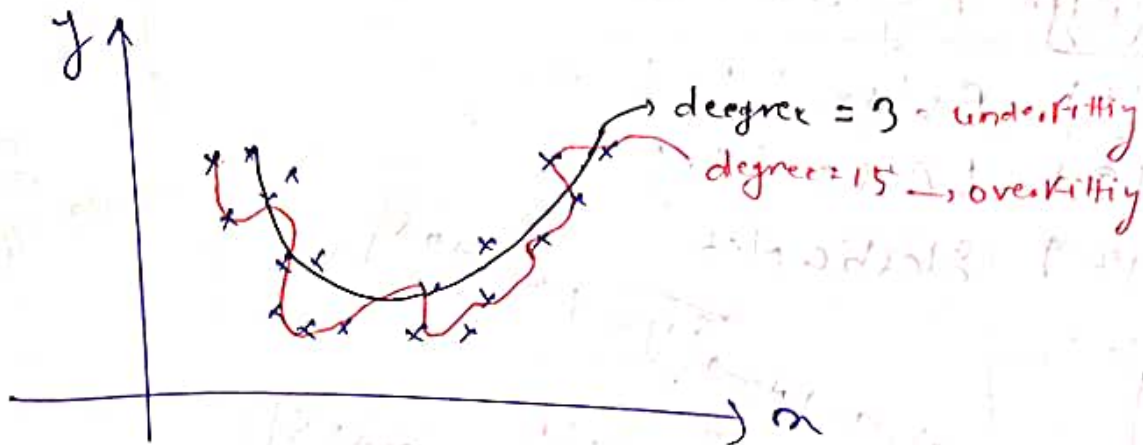 y
deegree = 3 - underfittiy
degree = 15 → overfittiy
x